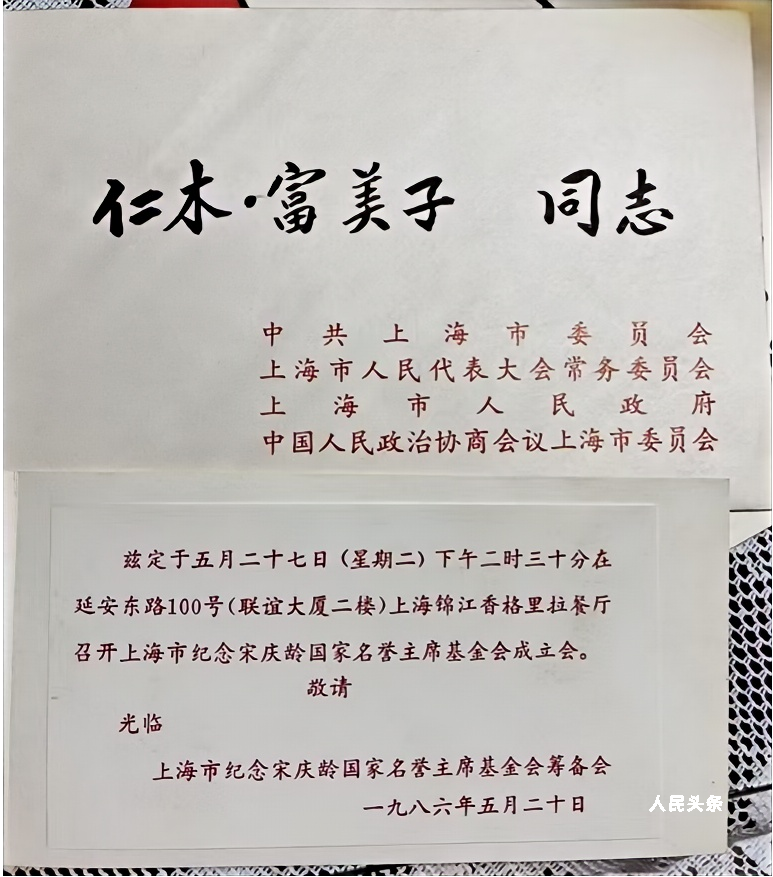 仁木·富美子 同志
中共上海市委员会
上海市人民代表大会常务委员会
上海市人民政府
中国人民政治协商会议上海市委员会
兹定于五月二十七日(星期二)下午二时三十分在
延安东路100号(联谊大厦二楼)上海锦江香格里拉餐厅
召开上海市纪念宋庆龄国家名誉主席基金会成立会。
敬请
光临
上海市纪念宋庆龄国家名誉主席基金会筹备会
一九八六年五月二十日
人民头条